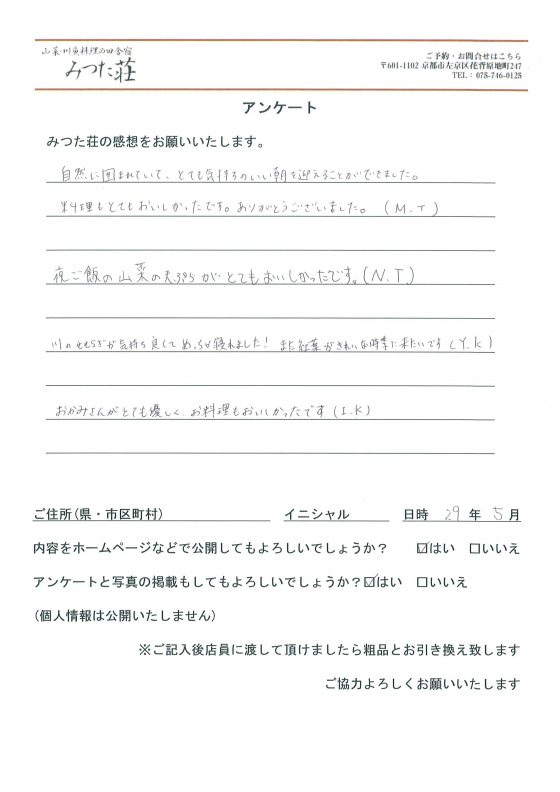 山菜・川魚料理の田舎宿
みつた荘
ご予約・お問合せはこちら
〒601-1102 京都市左京区花脊原地町247
TEL: 075-746-0128
アンケート
みつた荘の感想をお願いいたします。
自然に囲まれていて、とても気持ちのいい朝を迎えることができました。
料理もとてもおいしかったです。ありがとうございました。(M.T)
夜ご飯の山菜の天ぷらがとてもおいしかったです。(N.T)
川のせせらぎが気持ち良くてめっちゃ寝れました! また紅葉がきれいな時季に来たいです(Y.K)
おかみさんがとても優しく、お料理もおいしかったです(I.K)
ご住所(県・市区町村) イニシャル 日時 29年 5月
内容をホームページなどで公開してもよろしいでしょうか? ☑はい □いいえ
アンケートと写真の掲載もしてもよろしいでしょうか?☑はい □いいえ
(個人情報は公開いたしません)
※ご記入後店員に渡して頂けましたら粗品とお引き換え致します
ご協力よろしくお願いいたします